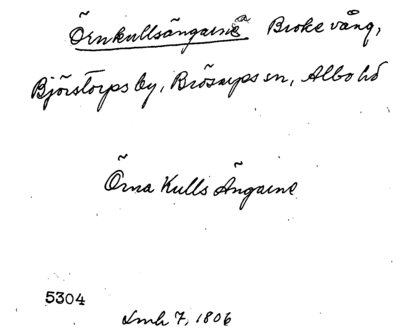 Örnkullsängarne Broke vång,
Björstorps by, Brösarps sn, Albo hd
Örna Kulls Ängarne
5304
Lmh 7, 1806